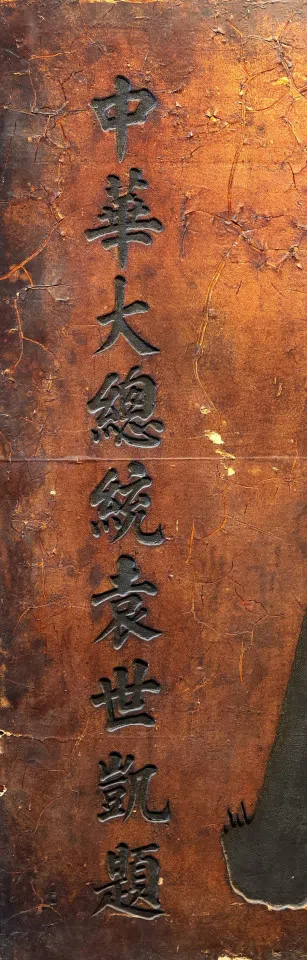 中華大總統袁世凱題